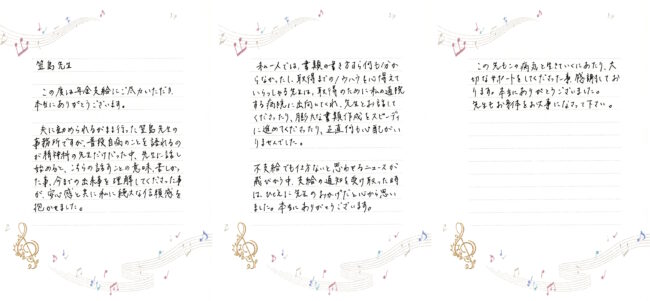 笠島先生
この度は年金支給にご尽力いただき、
本当にありがとうございます。
夫に勧められるがまま行った笠島先生の
事務所ですが、普段自病のことを語れるの
が精神科の先生だけだった中、先生に話し
始めると、こちらの話すことの意味、苦しかっ
た事、今までの出来事を理解してくださった事
が、安心感と共に私に絶大な信頼感を
抱かせました。
私一人では、書類の書き方すら何も分か
らなかったし、取得までのノウハウを心得て
いらっしゃる先生は、取得のために私の通院
する病院に出向いてくれ、先生とお話して
くださったり、膨大な書類作成をスピーディ
に進めてくださったり、正直何も心配がい
りませんでした。
不支給でも仕方ないと思わせるニュースが
飛びかう中、支給の通知を受け取った時
は、ひとえに先生のおかげだと心から思い
ました。本当にありがとうございます。
この先もこの病気と生きていくにあたり、大
切なサポートをしてくださった事、感謝してお
ります。本当にありがとうございました。
先生もお身体をお大事になさって下さい。